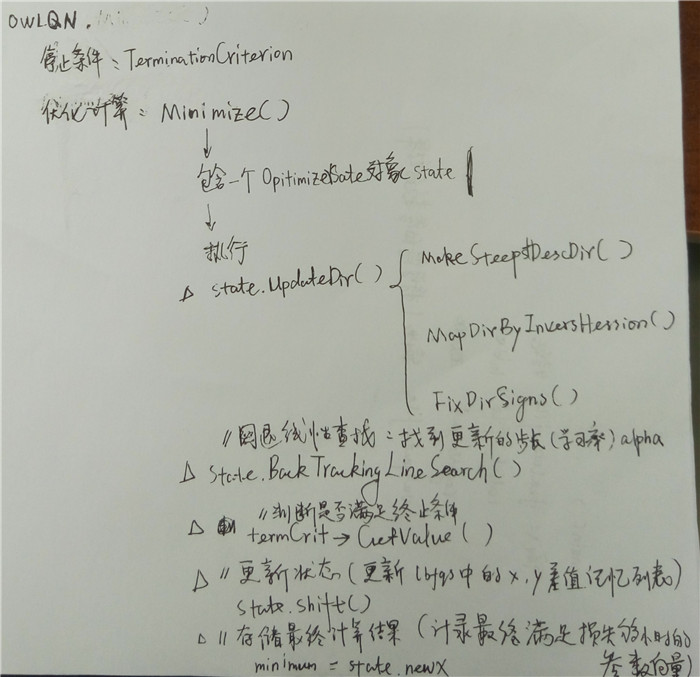 OWLQN.
停止条件：TerminationCriterion
优化计算：Minimize()
包含一个OpitimizeSate对象state
执行
△ state.UpdateDir()
MakeSteepstDescDir()
MapDirByInversHession()
FixDirSigns()
//回退线性查找：找到更新的步长(学习率)alpha
△ state.BackTrackingLineSearch()
//判断是否满足终止条件
△ termCrit→GetValue()
△ //更新状态(更新lbfgs中的x,y差值记忆列表)
state.shift()
△ //存储最终计算结果(记录最终满足损失够小时的
minimun = state.newX 参数向量)